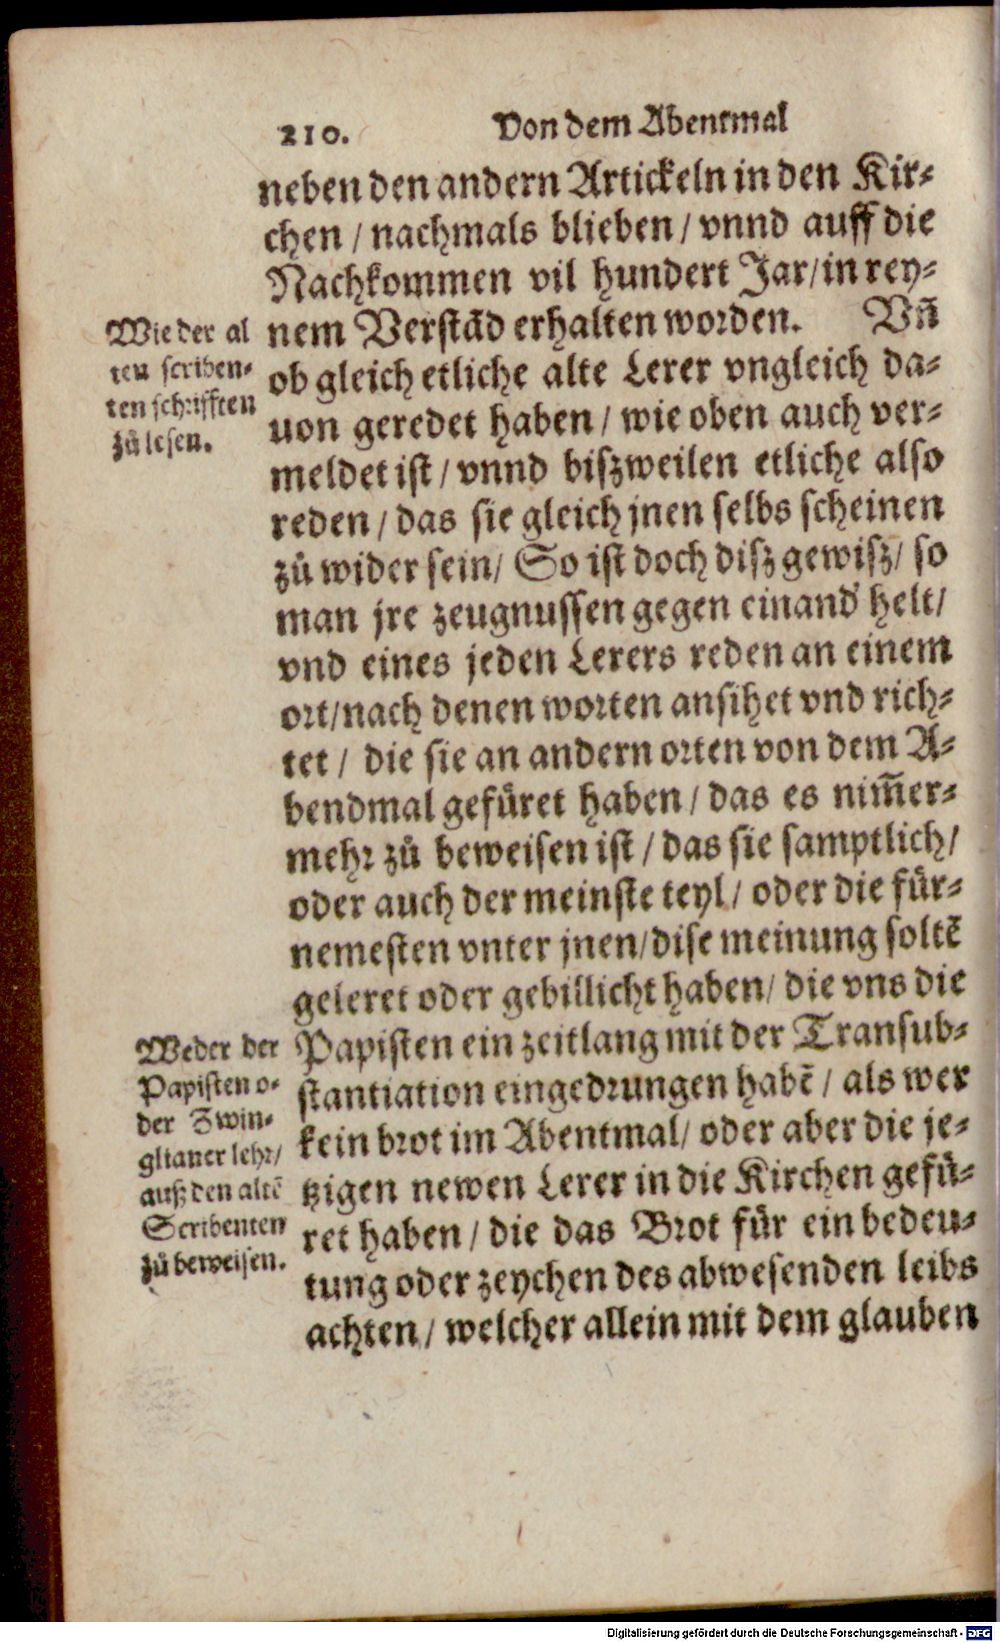 210. Von dem Abentmal
neben den andern Artickeln in den Kir-
chen / nachmals blieben / vnnd auff die
Nachkommen vil hundert Jar / in rey-
nem Verstãd erhalten worden. Vñ
ob gleich etliche alte Lerer vngleich da-
uon geredet haben / wie oben auch ver-
meldet ist / vnnd biszweilen etliche also
reden / das sie gleich jnen selbs scheinen
zů wider sein / So ist doch disz gewisz / so
man jre zeugnussen gegen einand' helt /
vnd eines jeden Lerers reden an einem
ort / nach denen worten ansihet vnd rich-
tet / die sie an andern orten von dem A-
bendmal gefüret haben / das es nim̃er-
mehr zů beweisen ist / das sie samptlich /
oder auch der meinste teyl / oder die für-
nemesten vnter jnen / dise meinung soltẽ
geleret oder gebillicht haben / die vns die
Papisten ein zeitlang mit der Transub-
stantiation eingedrungen habẽ / als wer
kein brot im Abentmal / oder aber die je-
tzigen newen Lerer in die Kirchen gefü-
ret haben / die das Brot für ein bedeu-
tung oder zeychen des abwesenden leibs
achten / welcher allein mit dem glauben
Wie der al
ten scriben-
ten schrifften
zů lesen.
Weder der
Papisten o-
der Zwin-
glianer lehr /
auß den altẽ
Scribenten
zů beweisen.
Digitalisierung gefördert durch die Deutsche Forschungsgemeinschaft - DFG